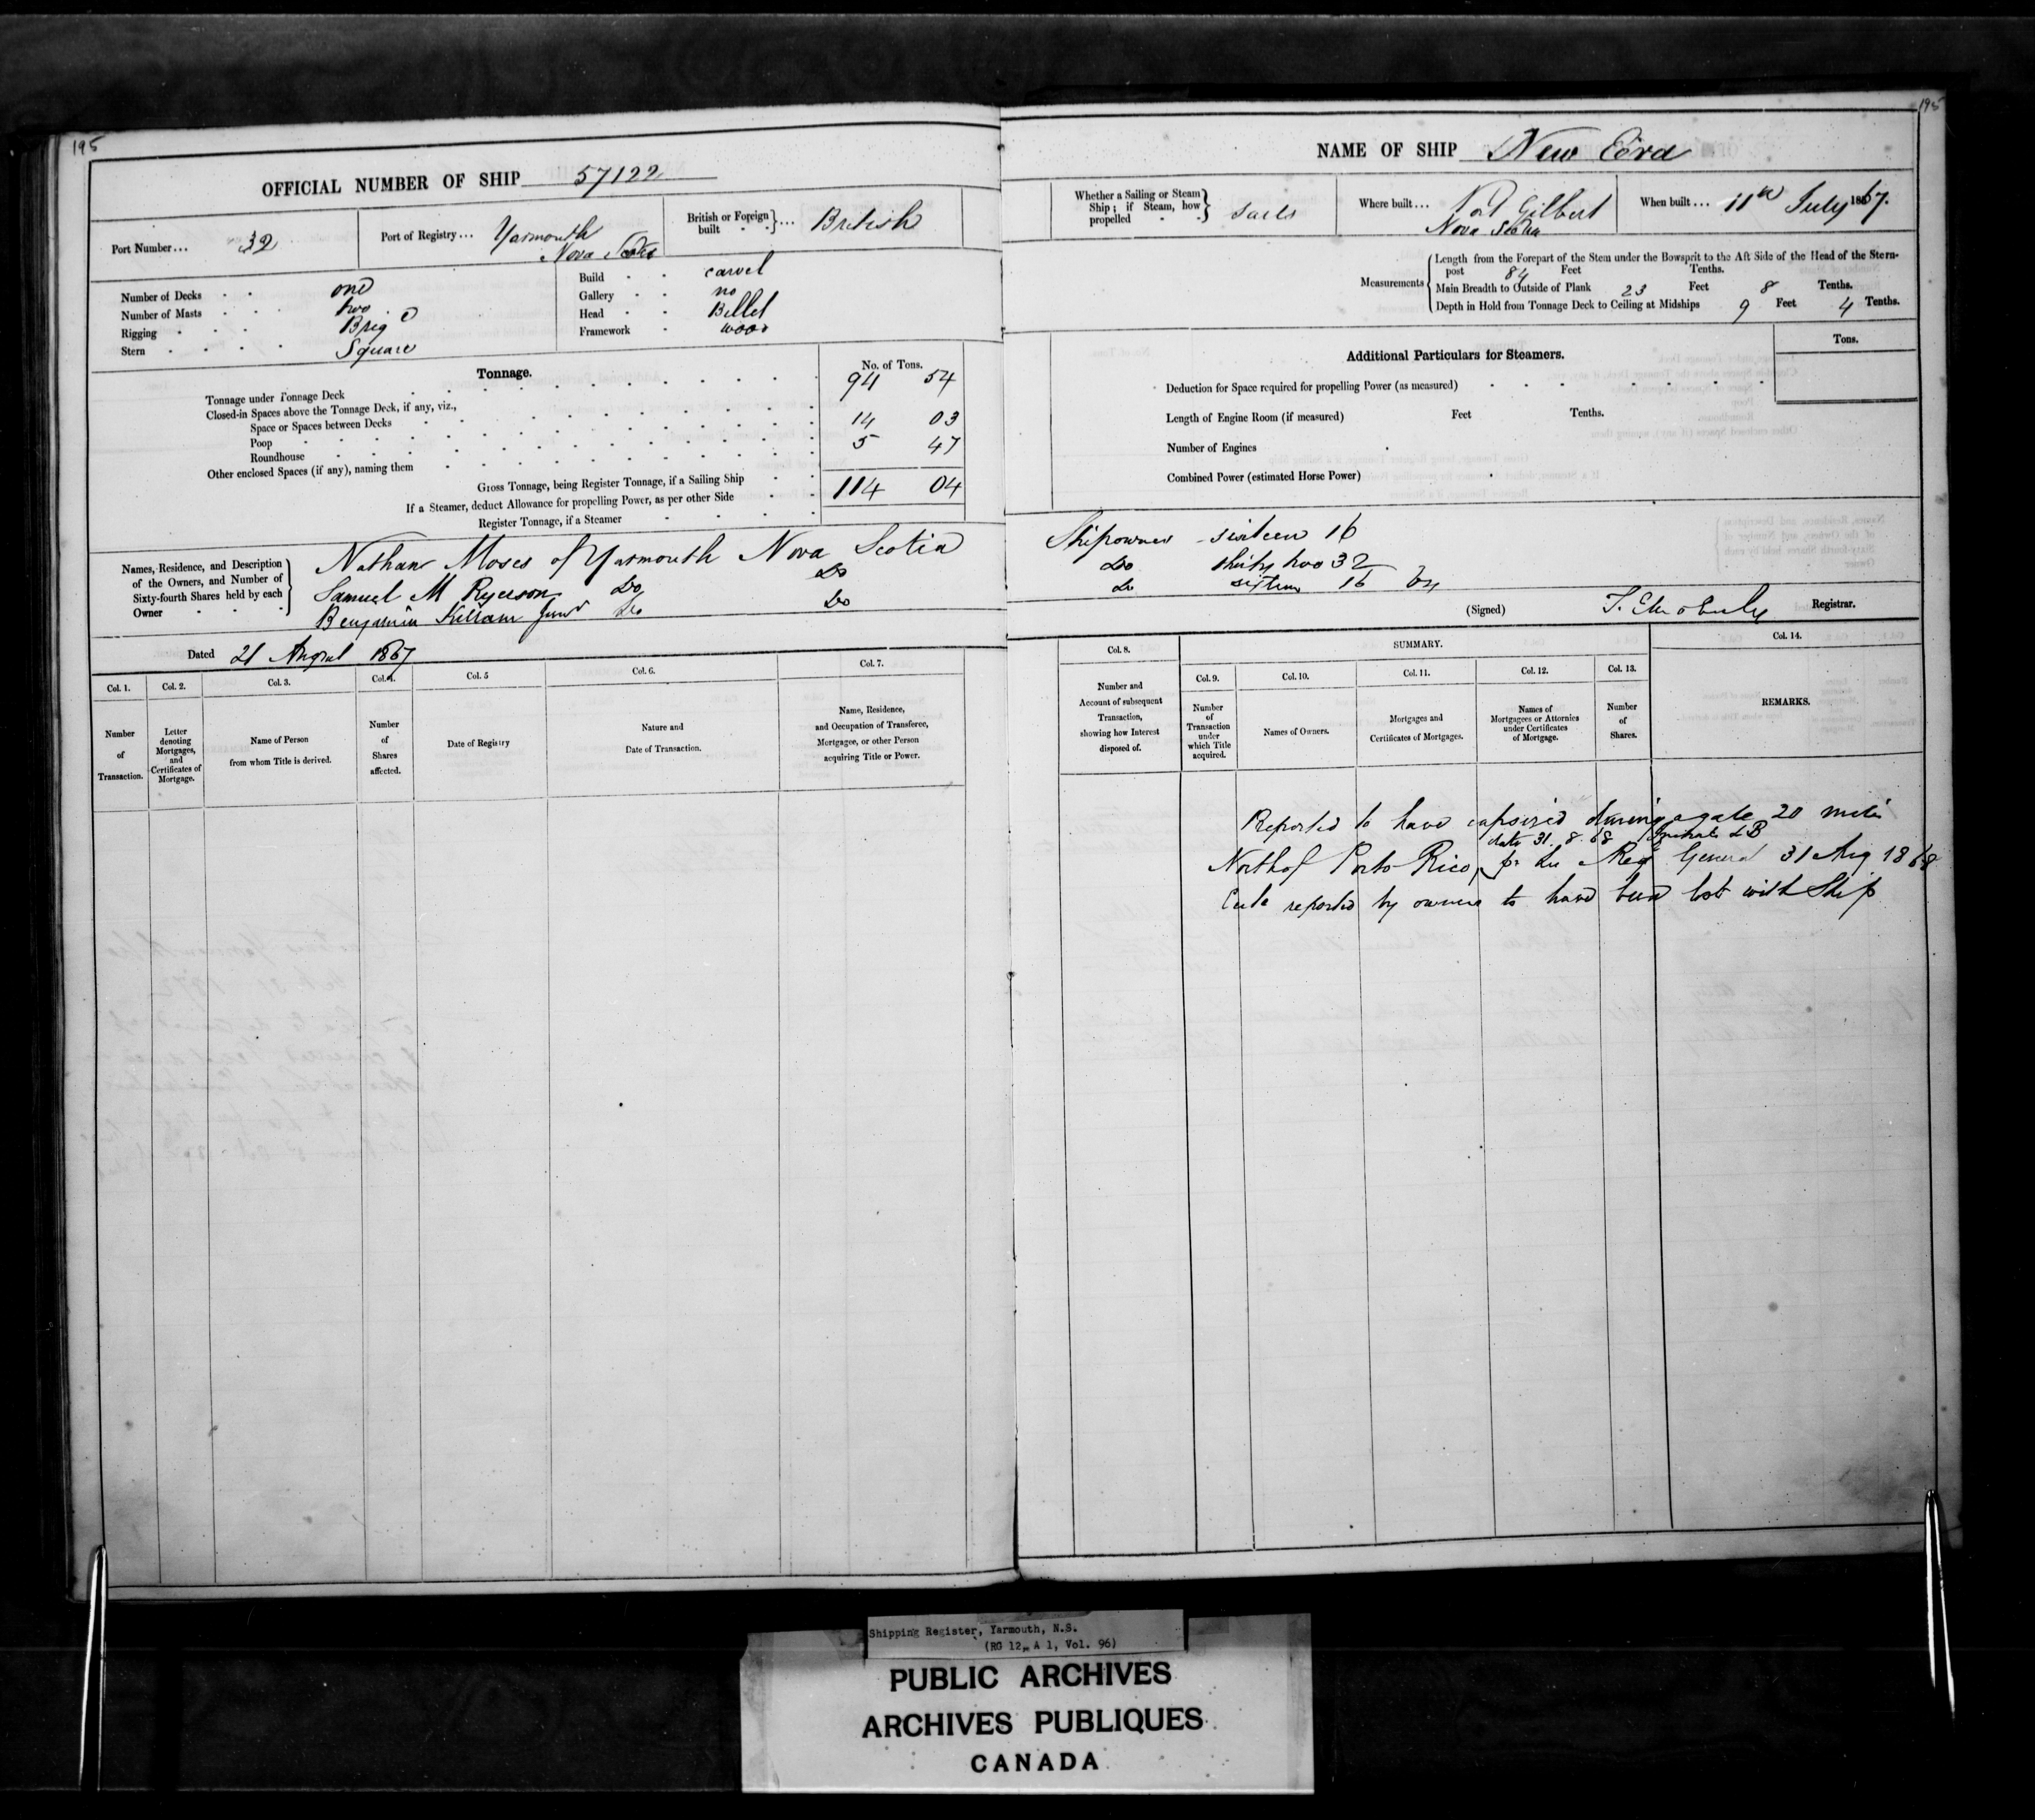 195
OFFICIAL NUMBER OF SHIP 57122
Port Number... 32
Port of Registry... Yarmouth
Nova Scotia
British or Foreign built ... British
Number of Decks one
Number of Masts two
Rigging Brig
Stern Square
Build carvel
Gallery no
Head Billet
Framework wood
Tonnage.
No. of Tons.
Tonnage under Tonnage Deck 94 54
Closed-in Spaces above the Tonnage Deck, if any, viz.,
Space or Spaces between Decks
Poop 14 03
Roundhouse 5 47
Other enclosed Spaces (if any), naming them
Gross Tonnage, being Register Tonnage, if a Sailing Ship 114 04
If a Steamer, deduct Allowance for propelling Power, as per other Side
Register Tonnage, if a Steamer
Names, Residence, and Description
of the Owners, and Number of
Sixty-fourth Shares held by each
Owner
Nathan Moses of Yarmouth Nova Scotia
Samuel M Ryerson Do Do
Benjamin Killam Junr Do Do
Dated 21 August 1867
Col. 1.
Number
of
Transaction.
Col. 2.
Letter
denoting
Mortgages,
and
Certificates of
Mortgage.
Col. 3.
Name of Person
from whom Title is derived.
Col. 4.
Number
of
Shares
affected.
Col. 5
Date of Registry
Col. 6.
Nature and
Date of Transaction.
Col. 7.
Name, Residence,
and Occupation of Transferee,
Mortgagee, or other Person
acquiring Title or Power.
195
NAME OF SHIP New Era
Whether a Sailing or Steam
Ship; if Steam, how
propelled
Sails
Where built... Port Gilbert
Nova Scotia
When built... 11th July 1867.
Measurements
Length from the Forepart of the Stem under the Bowsprit to the Aft Side of the Head of the Stern-
post 84 Feet Tenths.
Main Breadth to Outside of Plank 23 Feet 8 Tenths.
Depth in Hold from Tonnage Deck to Ceiling at Midships 9 Feet 4 Tenths.
Additional Particulars for Steamers.
Tons.
Deduction for Space required for propelling Power (as measured)
Length of Engine Room (if measured) Feet Tenths.
Number of Engines
Combined Power (estimated Horse Power)
Shipowner sixteen 16
Do thirty two 32
Do sixteen 16 64
(Signed) Registrar.
Col. 8.
Number and
Account of subsequent
Transaction,
showing how Interest
disposed of.
SUMMARY.
Col. 9.
Number
of
Transaction
under
which Title
acquired.
Col. 10.
Names of Owners.
Col. 11.
Mortgages and
Certificates of Mortgages.
Col. 12.
Names of
Mortgagees or Attornies
under Certificates
of Mortgage.
Col. 13.
Number
of
Shares.
Col. 14.
REMARKS.
Reported to have capsized during a gale 20 miles
date 31. 8. 68
North of Porto Rico, pr Reg General 31 Aug 1868
reported by owners to have been lost with Ship
Shipping Register, Yarmouth, N.S.
(RG 12, A 1, Vol. 96)
PUBLIC ARCHIVES
ARCHIVES PUBLIQUES
CANADA